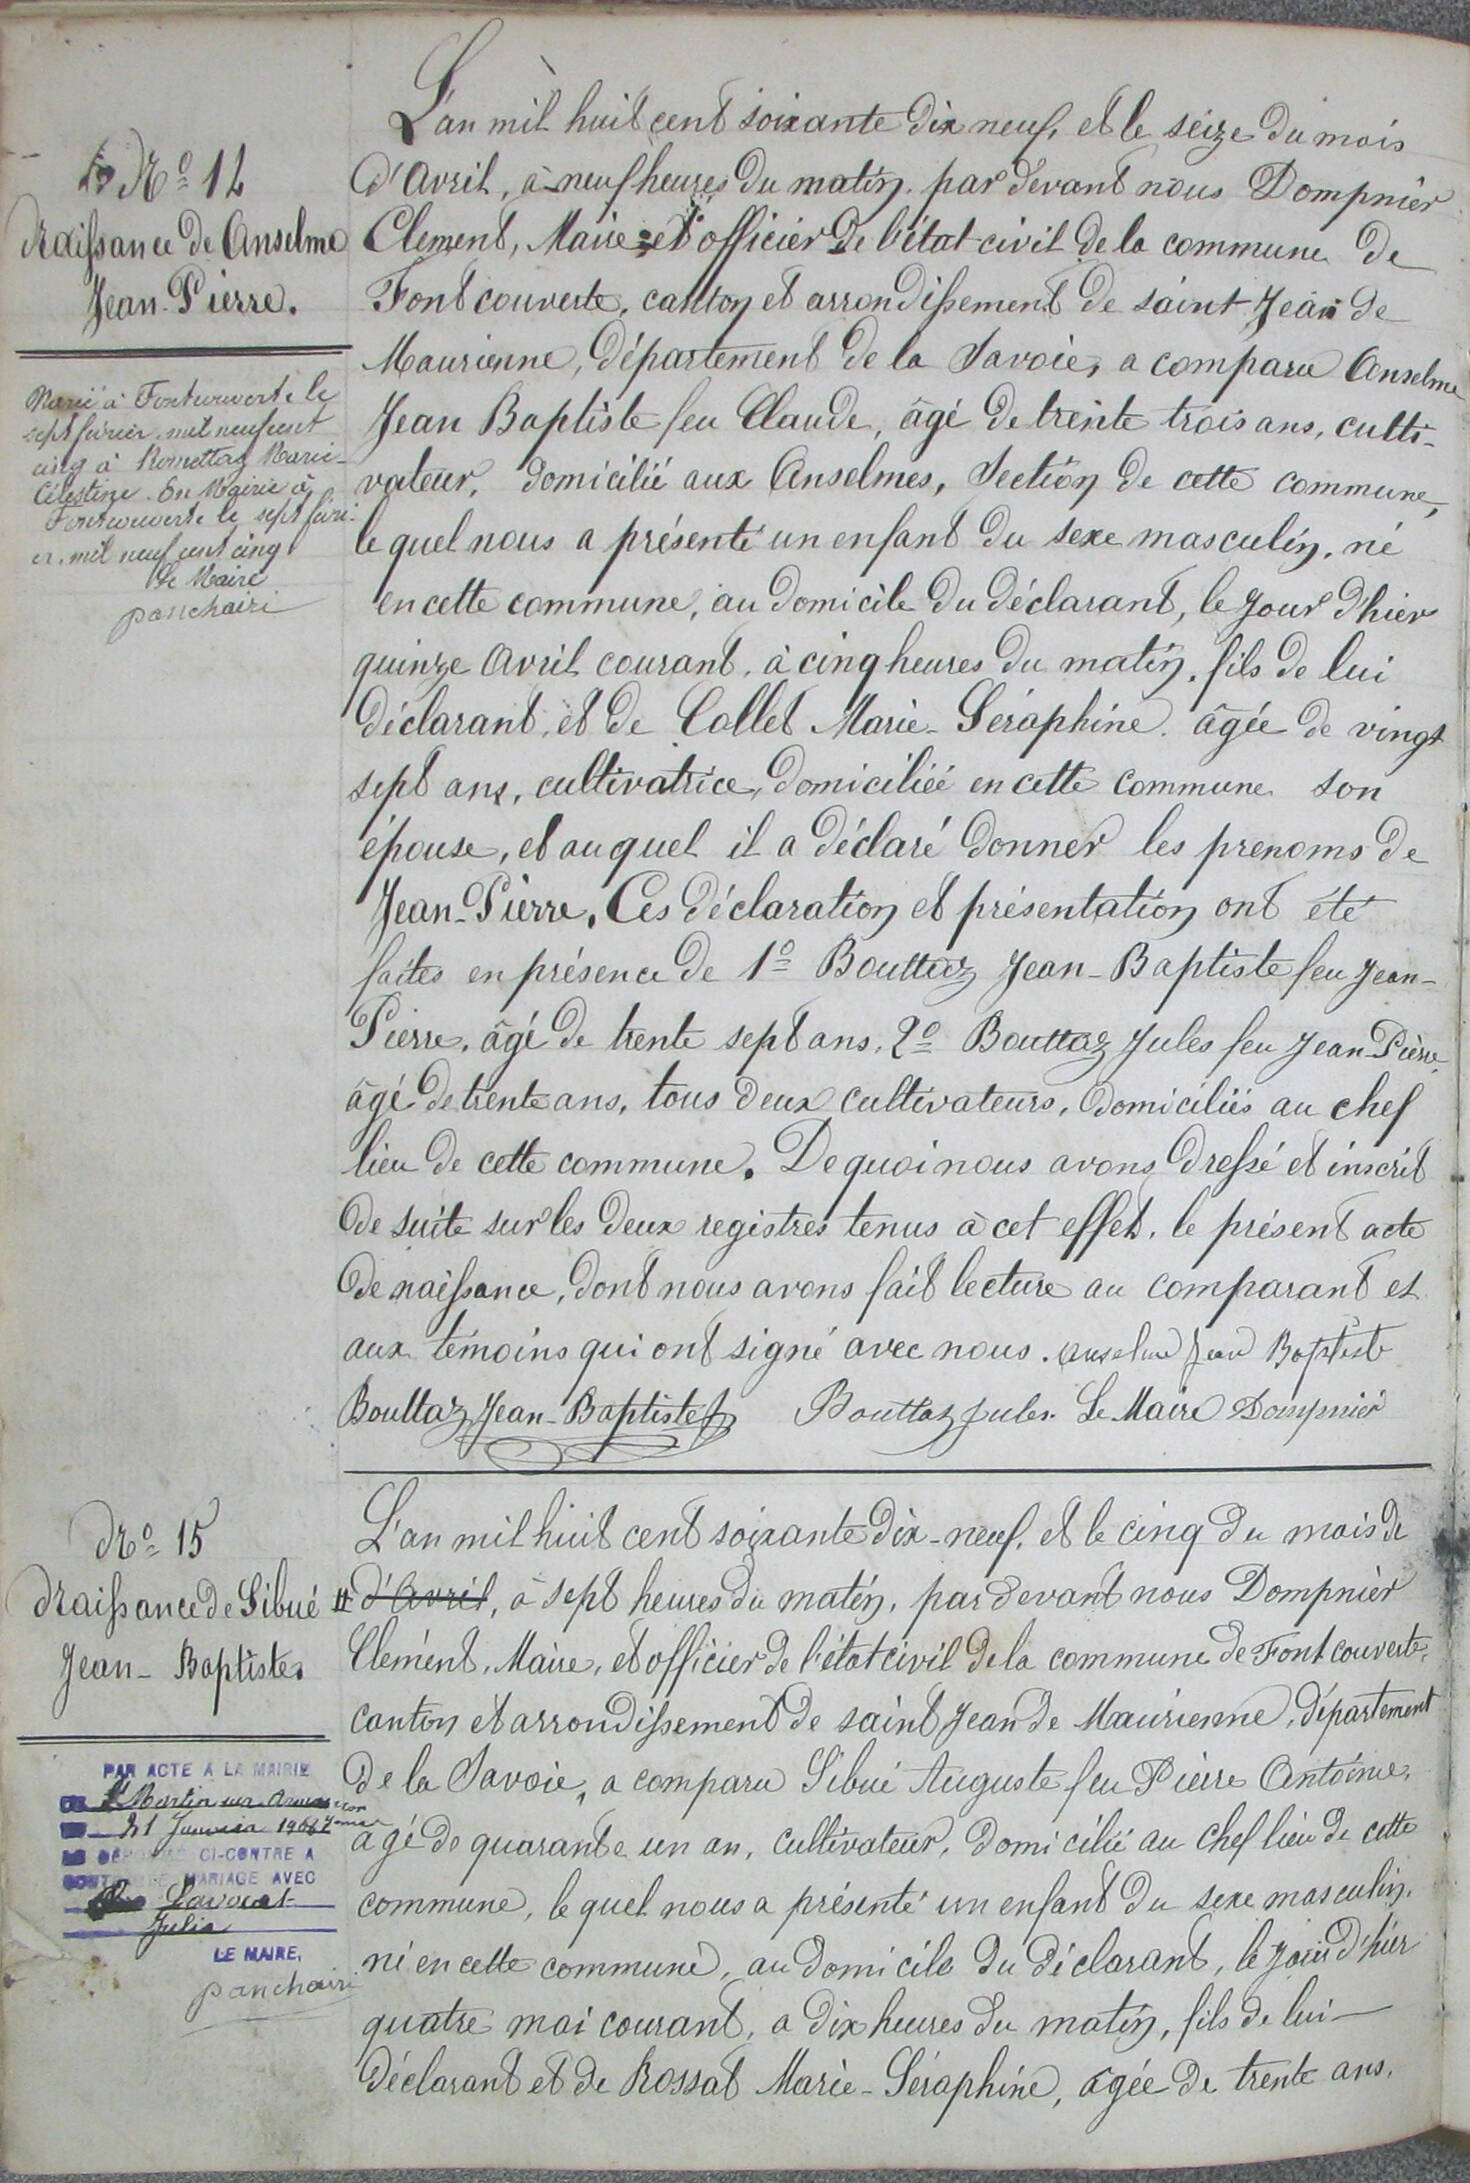 Nº 14
Naissance de Anselme
Jean-Pierre.
Marié à Fontcouverte le
sept février mil neuf cent
cinq à Romettaz Marie-
Célestine. En Mairie à
Fontcouverte le sept févri-
er mil neuf cent cinq
Le Maire
panchairi
L'an mil huit cent soixante dix neuf, et le seize du mois
d'Avril, à neuf heures du matin. par devant nous Dompnier
Clement, Maire et officier de l'état civil de la commune de
Fontcouverte, canton et arrondissement de saint Jean de
Maurienne, département de la Savoie, a comparu Anselme
Jean Baptiste feu Claude, âgé de trente trois ans, culti-
vateur, domicilié aux Anselmes, Section de cette commune,
le quel nous a présenté un enfant du sexe masculin, né
en cette commune, au domicile du déclarant, le jour d'hier
quinze Avril courant, à cinq heures du matin, fils de lui
déclarant, et de Collet Marie-Séraphine. âgée de vingt
sept ans, cultivatrice, domiciliée en cette commune son
épouse, et auquel il a déclaré donner les prenoms de
Jean-Pierre. Ces déclaration et présentation ont été
faites en présence de 1º Bouttaz Jean-Baptiste feu Jean-
Pierre, âgé de trente sept ans, 2º Bouttaz Jules feu Jean-Pierre,
âgé de trente ans, tous deux cultivateurs, domiciliés au chef
lieu de cette commune. De quoi nous avons dressé et inscrit
de suite sur les deux registres tenus à cet effet, le présent acte
de naissance, dont nous avons fait lecture au comparant et
aux témoins qui ont signé avec nous. Anselme Jean Baptiste
Bouttaz Jean-Baptiste Bouttaz Jules Le Maire Dompnier
Nº 15
Naissance de Sibué
Jean-Baptiste.
PAR ACTE A LA MAIRIE
St Martin sur
21 Janvier
CI-CONTRE A
MARIAGE AVEC
Julia
LE MAIRE,
panchairi
L'an mil huit cent soixante dix-neuf, et le cinq du mois de
d'Avril, à sept heures du matin, par devant nous Dompnier
Clement, Maire, et officier de l'état civil de la commune de Fontcouverte,
canton et arrondissement de saint Jean de Maurienne, département
de la Savoie, a comparu Sibué Auguste feu Pierre Antoine,
agé de quarante un an, cultivateur, domicilié au chef lieu de cette
commune, le quel nous a présenté un enfant du sexe masculin,
né en cette commune, au domicile du déclarant, le jour d'hier
quatre mai courant, a dix heures du matin, fils de lui
déclarant et de Rossat Marie-Séraphine, agée de trente ans,